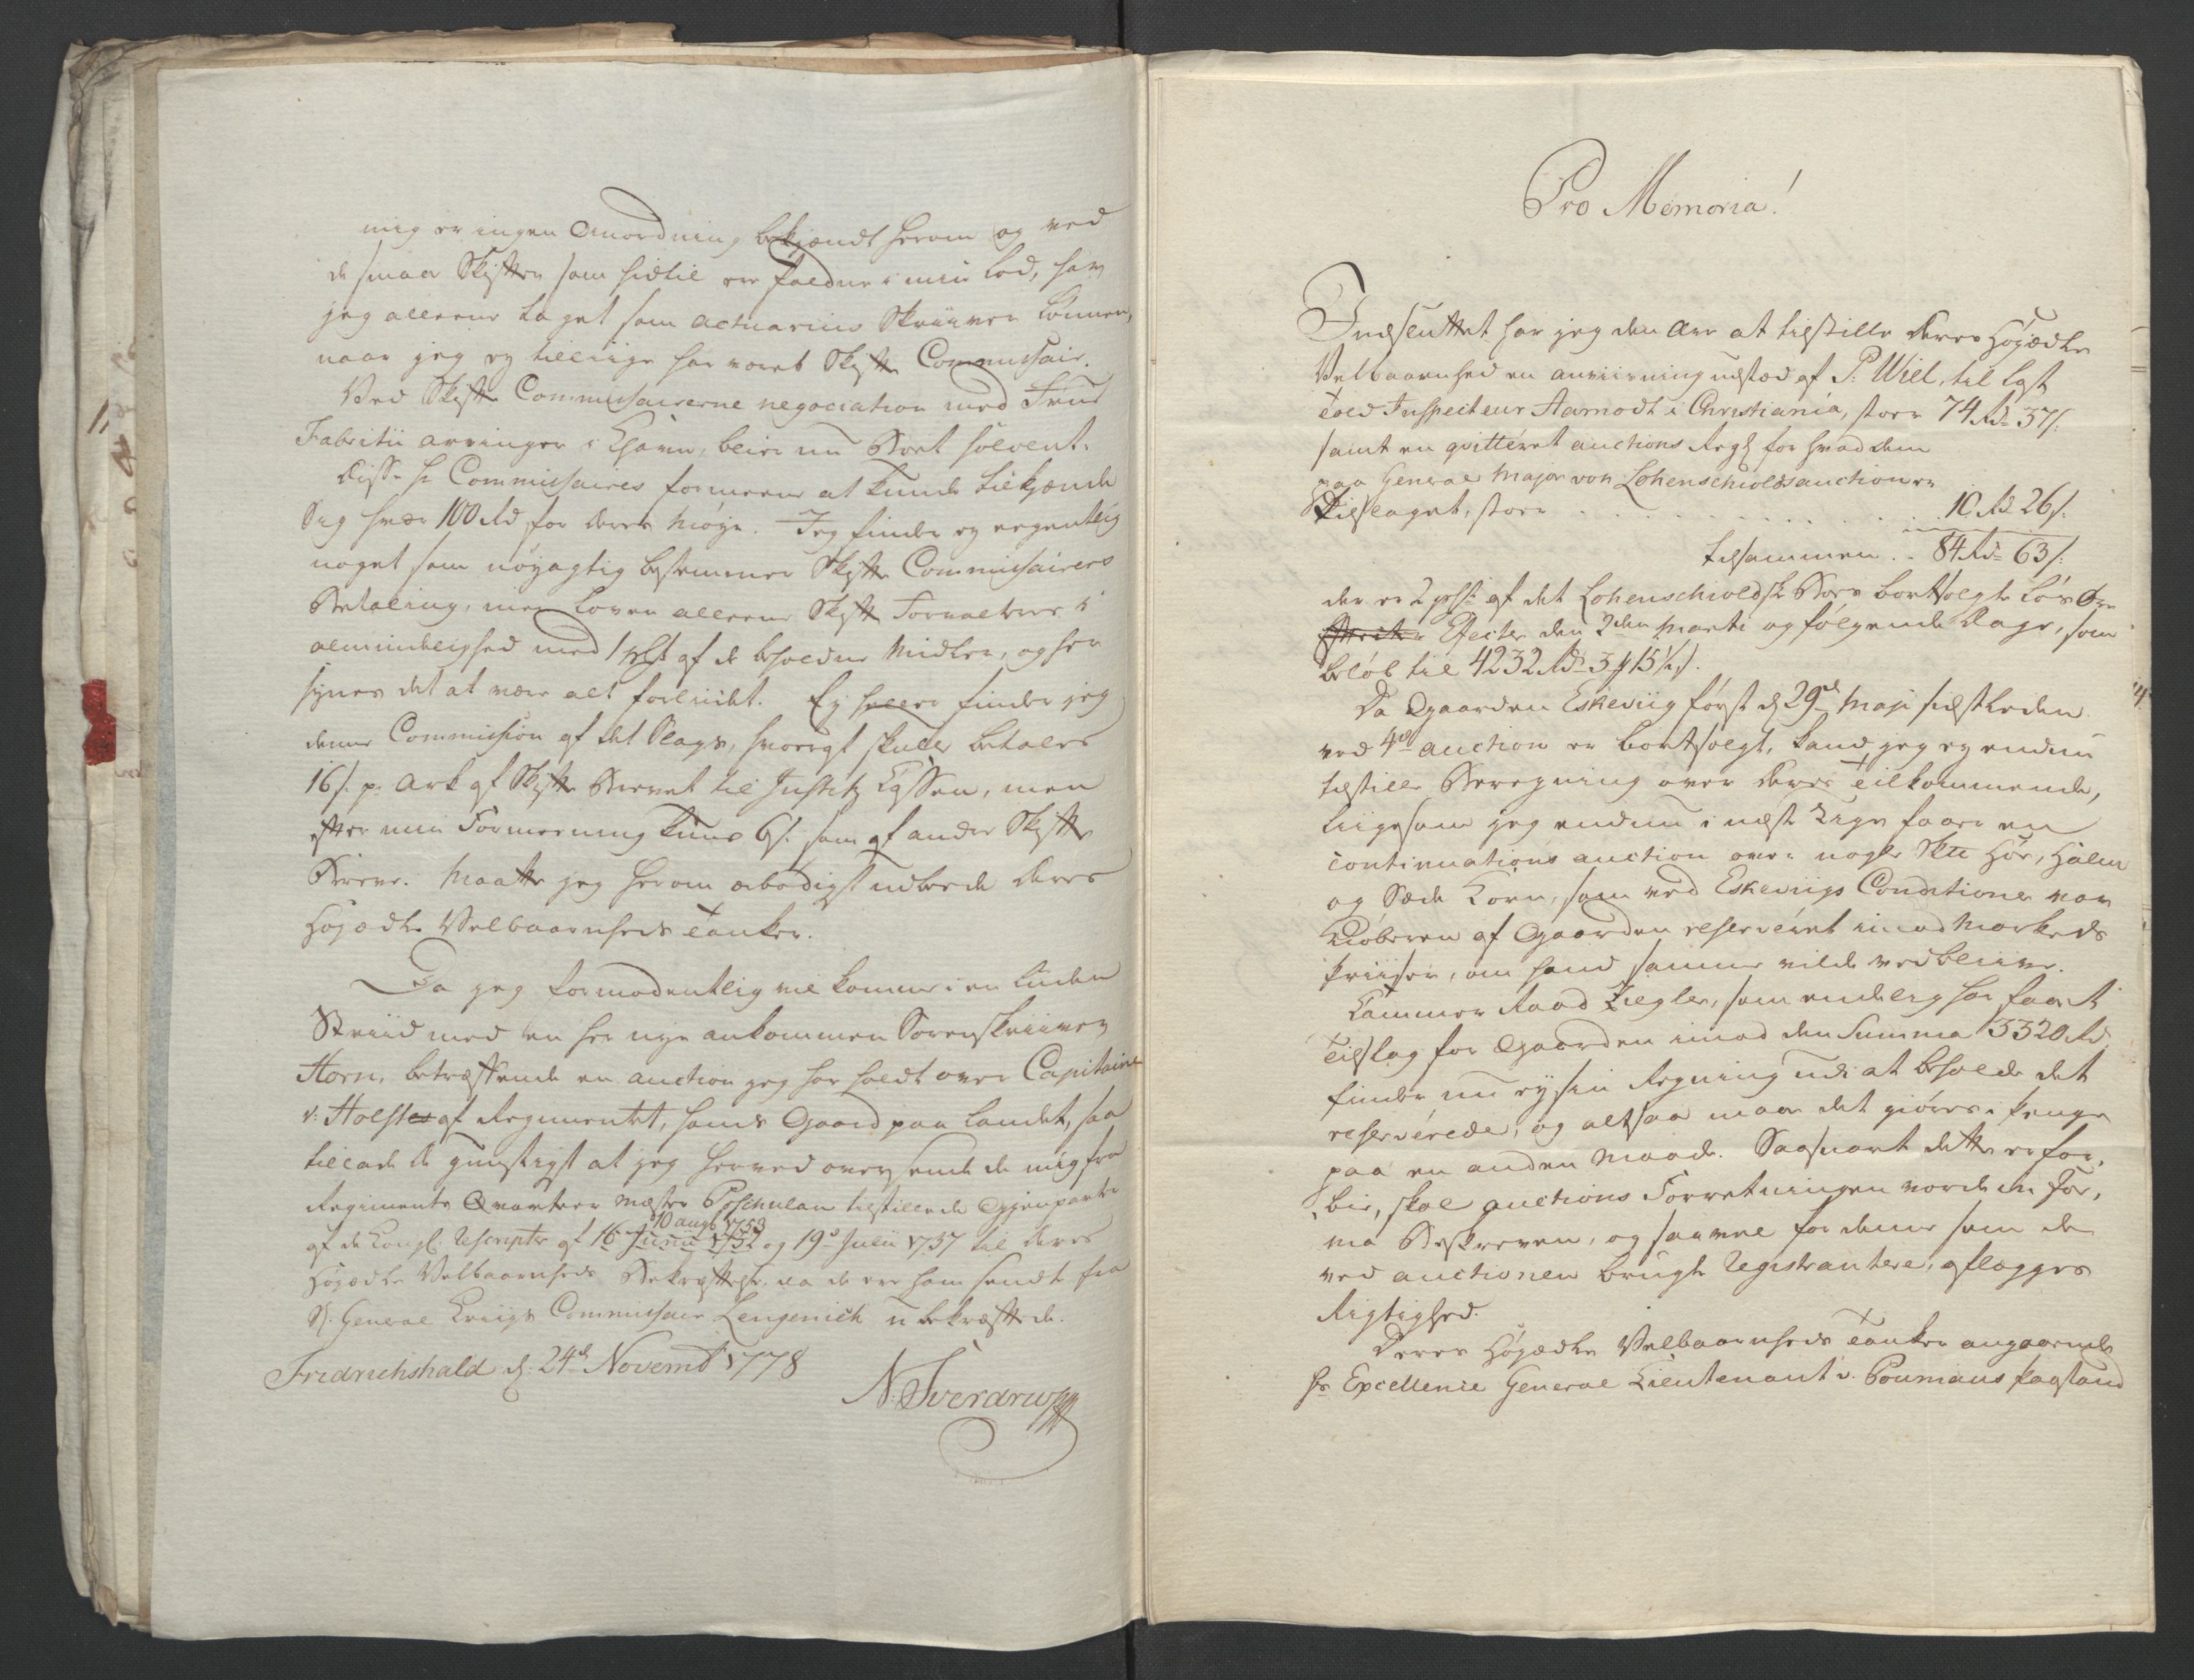 mig er ingen Anordning bekjændt herom og ved
de smaae Skifter som hidtil ere faldne i min tid, har
jeg alleene taget som Actuarius Skriiver Lönnen,
naar jeg og tilliige har været Skifte Commissair.
Ved Skifte Commissairerne negociation med Frue
Fabritii arvinger i Kjøbenhavn, blive nu Boet solvent.
Disse Hr Commissaires formeener at kunde tilkjænde
Sig hver 100 Rd for deres Møye. Jeg finder ey egentlig
noget som nöyagtig bestemmer Skifte Commissairers
Betaling, men Loven alleene Skifte Forvaltere i
almindelighed med 1 pCt af de beholdne Midler, og her
synes det at være alt forliidet. Ey heller finder jeg
denne Commission af det Slags, hvoraf skulle betales
16 s. pr Ark af Skifte Brevet til Justitz Cassen, men
efter min Formeening kuns 6 s. som af andre Skifte
Breve. Maatte jeg herom ærbødigst udbede Deres
Höyædle Velbaarenheds Tanker.
Da jeg formodentlig vil komme i en liden
Striid med en her nye ankommen Sorenskriiver
Horn, betræffende en auction jeg har holdt over Capitaine
v: Holsts af Regimentet, hans Gaard paa Landet, saa
tillade De gunstigst at jeg herved oversende de mig fra
Regiments Qvarteer Mæster Poschulan tilstillede Gjenparter
10 augt 1753
af de Kongl. Rescripter af 16 Junii 1752 og 19d Julii 1757 til Deres
Höyædle Velbaarenheds Bekræftelse, da de ere ham sendt fra
Hr General Kriigs Commissair Lengenich ubekræftede.
Fridrichshald d. 24d Novembr 1778
N. Sverdrup
Pro Memoria!
Indsluttet har jeg den Ære at tilstille Deres Höyædle
Velbaarenhed en anviisning udstæd af P: Wiel, til Cst
Told Inspecteur Aamodt i Christiania, stoer 74 Rd 37 s.
samt en qvitteret auctions Regl for hvad dem
paa General Major von Lohenschiolds auction er
tilslaget, stoer . . . 10 Rd 26 s.
tilsammen . . 84 Rd 63 s.
der er 2 pCt af det Lohenschioldske Boes bortsolgte lös Öre
Effecter den 2den Marti og følgende Dage, som
belöb til 4232 Rd 3 ß 15½ s.
Da Gaarden Eskeviig först d. 29d Maji sidstleden
ved 4de auction er bortsolgt, kand jeg ey endnu
tilstille Beregning over Deres Tilkommende,
liigesom jeg endnu i næste Uge faaer en
continuations auction over nogle Skll Höe, Halm
og Sæde Korn, som ved Eskeviigs Conditioner var
Kiöberen af Gaarden reserveret imod Markeds
Priiser, om hand samme vilde vedblive.
Cammer Raad Ziegler, som endelig har faaet
Tilslag for Gaarden imod den Summa 3320 Rd
finder nu ey sin Regning ved at beholde det
reserverede, og altsaa maa det giöres i Penge
paa en anden Maade. Saasnart dette er for,
bie, skal auctions Forretningen vorde in For,
ma Beskreven, og saavel for denne som de
ved auctionen brugte Registrantere, aflægges
Rigtighed.
Deres Höyædle Velbaarenheds Tanker angaaende
Hr Excellence General Lieutenant v. Poumans Paastand